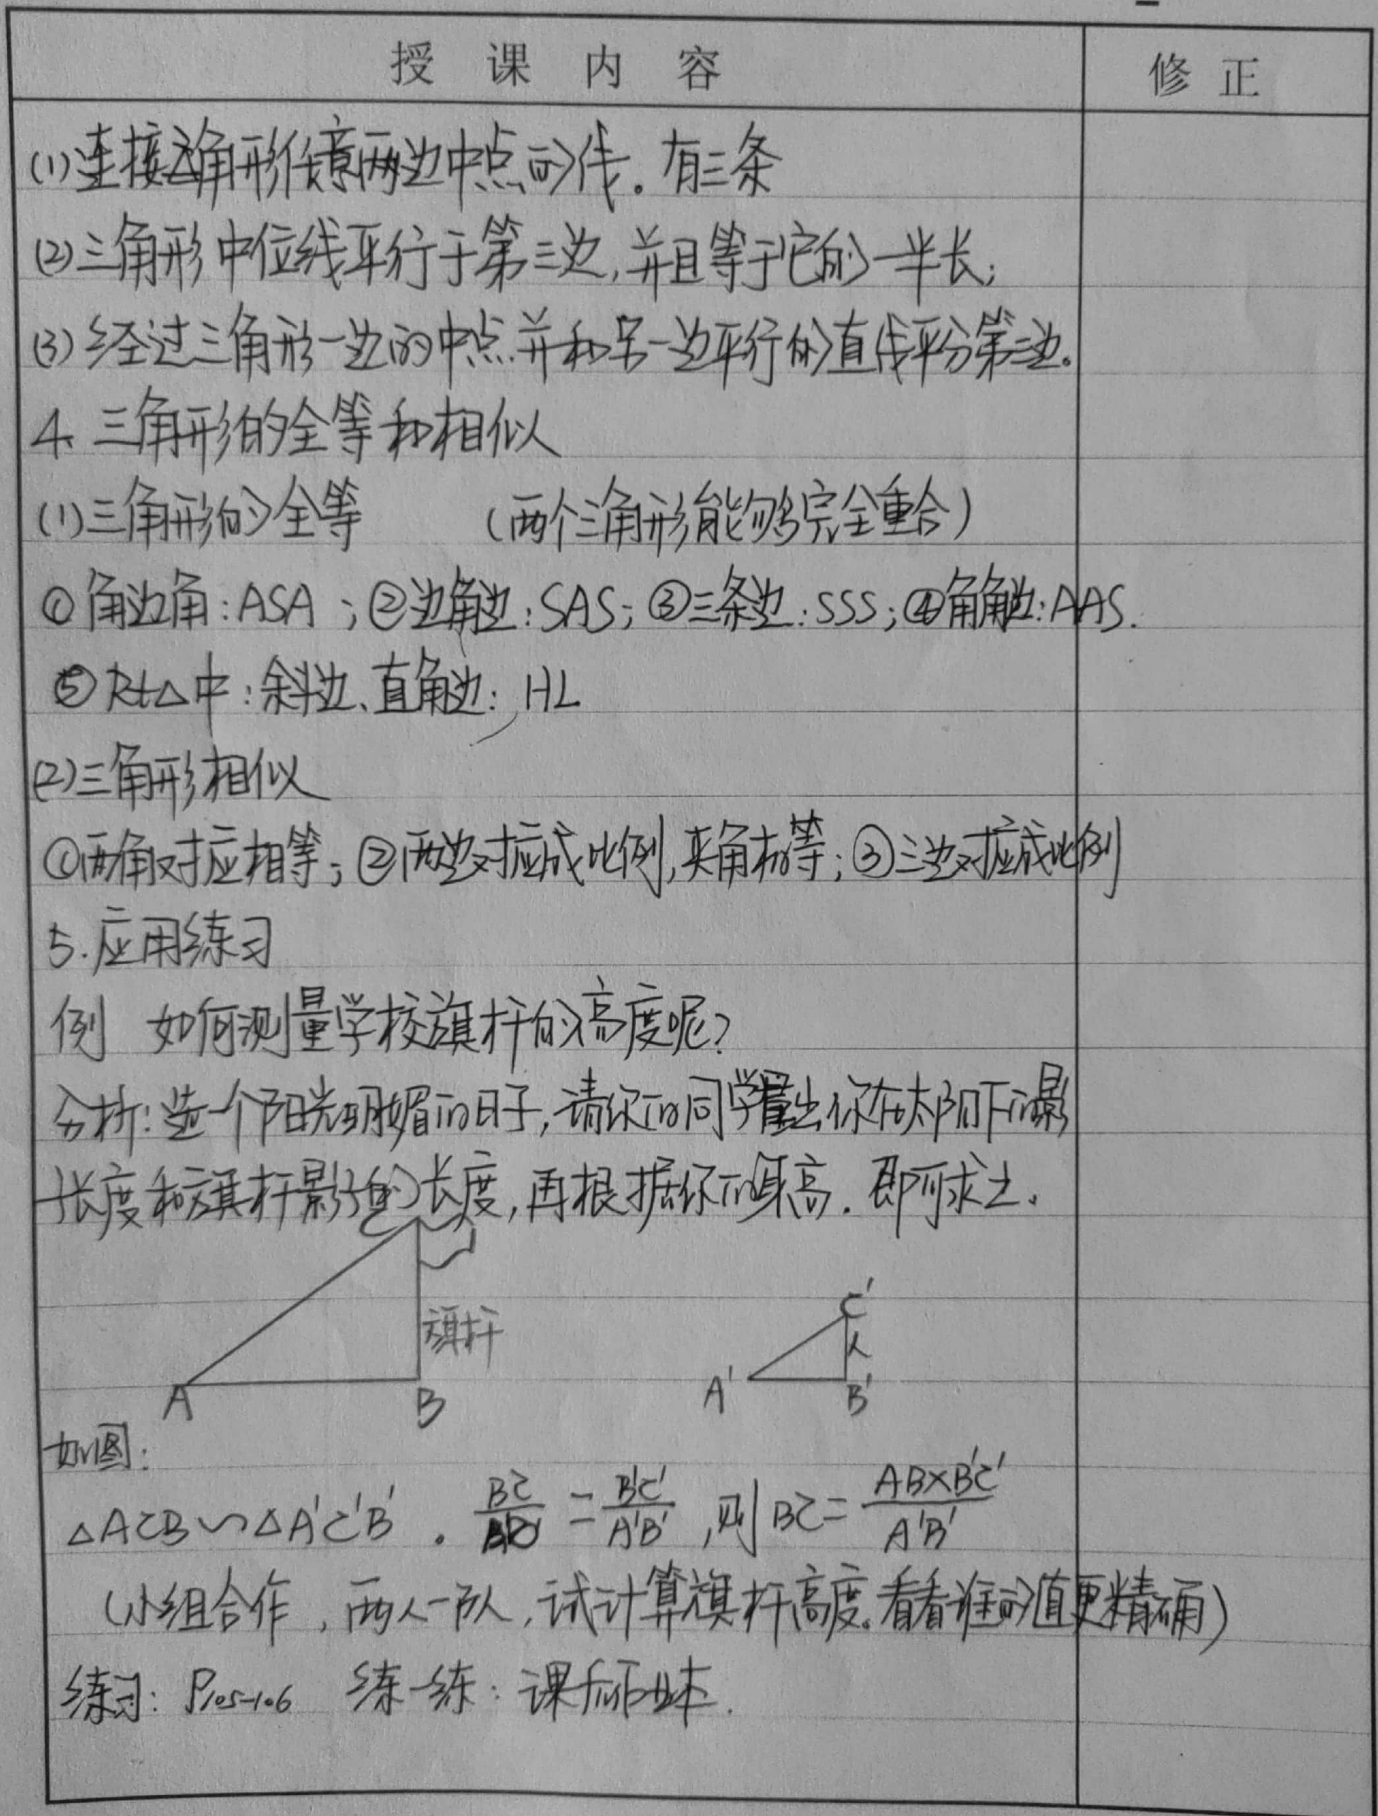 授课内容 修正
(1)连接三角形任意两边中点的线。有三条
(2)三角形中位线平行于第三边,并且等于它的一半长;
(3)经过三角形一边的中点并和另一边平行的直线平分第三边。
4、三角形的全等和相似
(1)三角形的全等 (两个三角形能够完全重合)
①角边角:ASA;②边角边:SAS;③三条边:SSS;④角角边:AAS.
⑤Rt△中:斜边、直角边:HL
(2)三角形相似
①两角对应相等;②两边对应成比例,夹角相等;③三边对应成比例
5.应用练习
例 如何测量学校旗杆的高度呢?
分析:选一个阳光明媚的日子,请你的同学量出你在太阳下的影
子长度和旗杆影子的长度,再根据你的身高.即可求出.
C
C'
旗杆
人
A B A' B'
如图:
△ACB∽△A'C'B'. BC/AB = B'C'/A'B',则BC= AB×B'C'/A'B'
(小组合作,两人一队,试计算旗杆高度.看看谁的值更精确)
练习:P105-106 练一练:课后作业本.